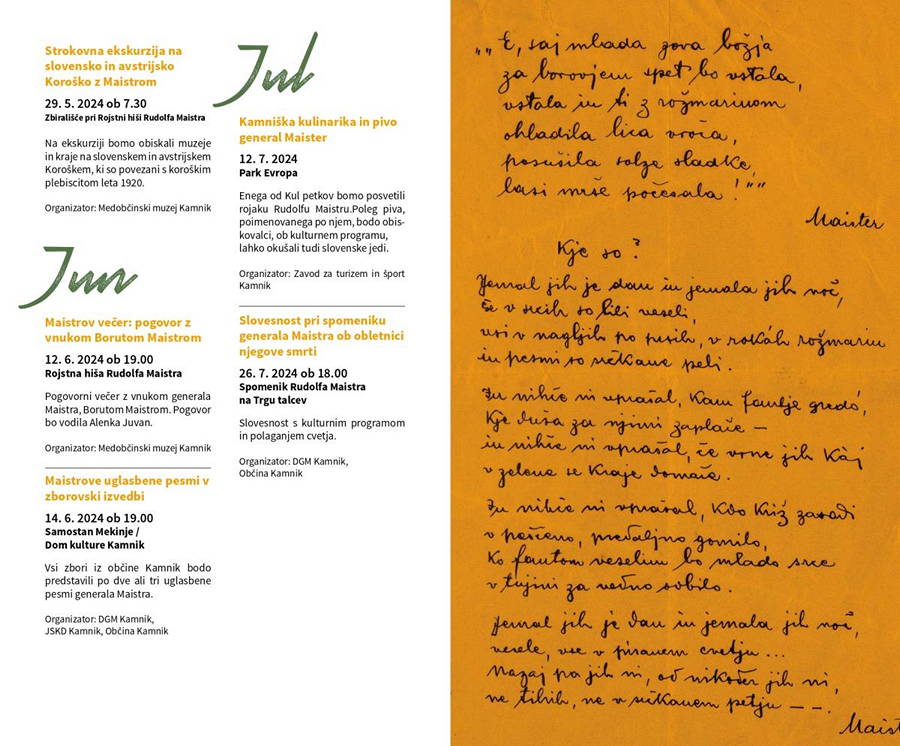 Strokovna ekskurzija na
slovensko in avstrijsko
Koroško z Maistrom
29. 5. 2024 ob 7.30
Zbirališče pri Rojstni hiši Rudolfa Maistra
Na ekskurziji bomo obiskali muzeje
in kraje na slovenskem in avstrijskem
Koroškem, ki so povezani s koroškim
plebiscitom leta 1920.
Organizator: Medobčinski muzej Kamnik
Jun
Maistrov večer: pogovor z
vnukom Borutom Maistrom
12. 6. 2024 ob 19.00
Rojstna hiša Rudolfa Maistra
Pogovorni večer z vnukom generala
Maistra, Borutom Maistrom. Pogovor
bo vodila Alenka Juvan.
Organizator: Medobčinski muzej Kamnik
Maistrove uglasbene pesmi v
zborovski izvedbi
14. 6. 2024 ob 19.00
Samostan Mekinje /
Dom kulture Kamnik
Vsi zbori iz občine Kamnik bodo
predstavili po dve ali tri uglasbene
pesmi generala Maistra.
Organizator: DGM Kamnik,
JSKD Kamnik, Občina Kamnik
Jul
Kamniška kulinarika in pivo
general Maister
12. 7. 2024
Park Evropa
Enega od Kul petkov bomo posvetili
rojaku Rudolfu Maistru.Poleg piva,
poimenovanega po njem, bodo obis-
kovalci, ob kulturnem programu,
lahko okušali tudi slovenske jedi.
Organizator: Zavod za turizem in šport
Kamnik
Slovesnost pri spomeniku
generala Maistra ob obletnici
njegove smrti
26. 7. 2024 ob 18.00
Spomenik Rudolfa Maistra
na Trgu talcev
Slovesnost s kulturnim programom
in polaganjem cvetja.
Organizator: DGM Kamnik,
Občina Kamnik
„„E, saj mlada zova božja
za borovjem spet bo vstala,
vstala in ti z rožmarinom
ohladila lica vroča,
posušila solze sladke,
lasi mrše počesala!““
Maister
Kje so?
Jemal jih je dan in jemala jih noč,
če v srcih so bili veseli,
vsi v nageljih po prsih, v rokáh rožmarin
in pesmi so vriskane peli.
In nihče ni vprašal, kam fantje gredó,
kje duša za njimi zaplače —
in nihče ni vprašal, če vrne jih kàj
v zelene se kraje domače.
In nihče ni vprašal, kdo križ zasadi
v peščeno, predaljno gomilo,
ko fantom veselim bo mlado srce
v tujini za vedno odbilo.
Jemal jih je dan in jemala jih noč,
vesele, vse v pisanem cvetju ...
Nazaj pa jih ni, od nikoder jih ni,
ne tihih, ne v vriskanem petju — —.